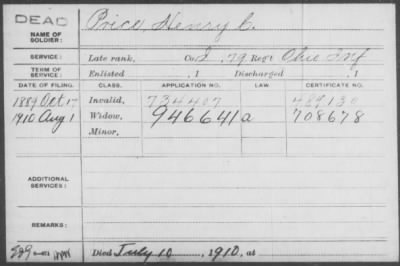 DEAD
Price, Henry C.
NAME OF
SOLDIER:
SERVICE: Late rank, Co. I, 79 Reg't Ohio Inf
TERM OF
SERVICE: Enlisted , 1 Discharged , 1
DATE OF FILING. CLASS. APPLICATION NO. LAW CERTIFICATE NO.
1889 Oct 17 Invalid, 734407 489130
1910 Aug 1 Widow, 946641 a 708678
Minor,
ADDITIONAL
SERVICES:
REMARKS:
Died July 10, 1910, at